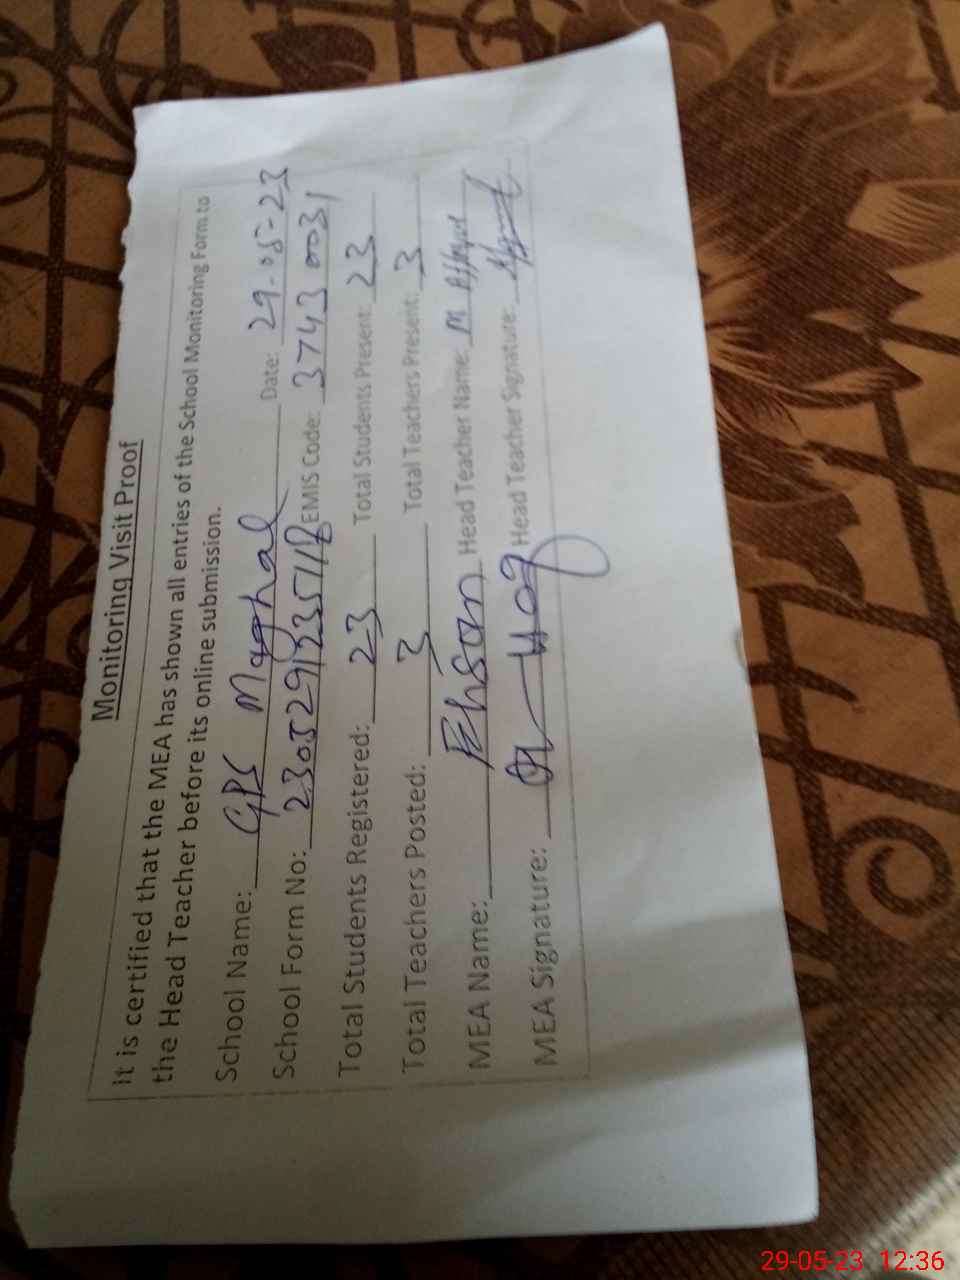 Monitoring Visit Proof
It is certified that the MEA has shown all entries of the School Monitoring Form to
the Head Teacher before its online submission.
School Name: GPS Maghal Date: 29-05-23
School Form No: 2305291235118 EMIS Code: 37430031
Total Students Registered: 23 Total Students Present: 23
Total Teachers Posted: 3 Total Teachers Present: 3
MEA Name: Ehsan Head Teacher Name: M
MEA Signature: Head Teacher Signature:
29-05-23 12:36